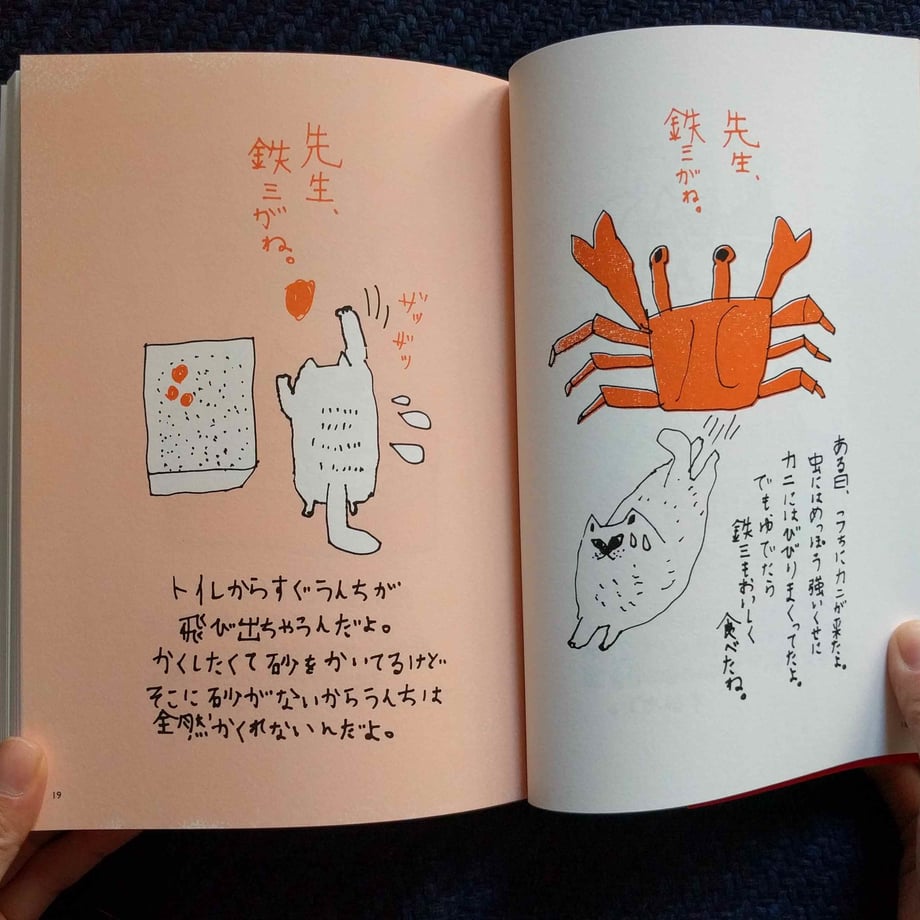 先生、
鉄三がね。
ある日、うちにカニが来たよ。
虫にはめっぽう強いくせに
カニにはびびりまくってたよ。
でもゆでたら
鉄三もおいしく
食べたね。
先生、
鉄三がね。
ザッザッ
トイレからすぐうんちが
飛び出ちゃうんだよ。
かくしたくて砂をかいてるけど
そこに砂がないからうんちは
全然かくれないんだよ。
19